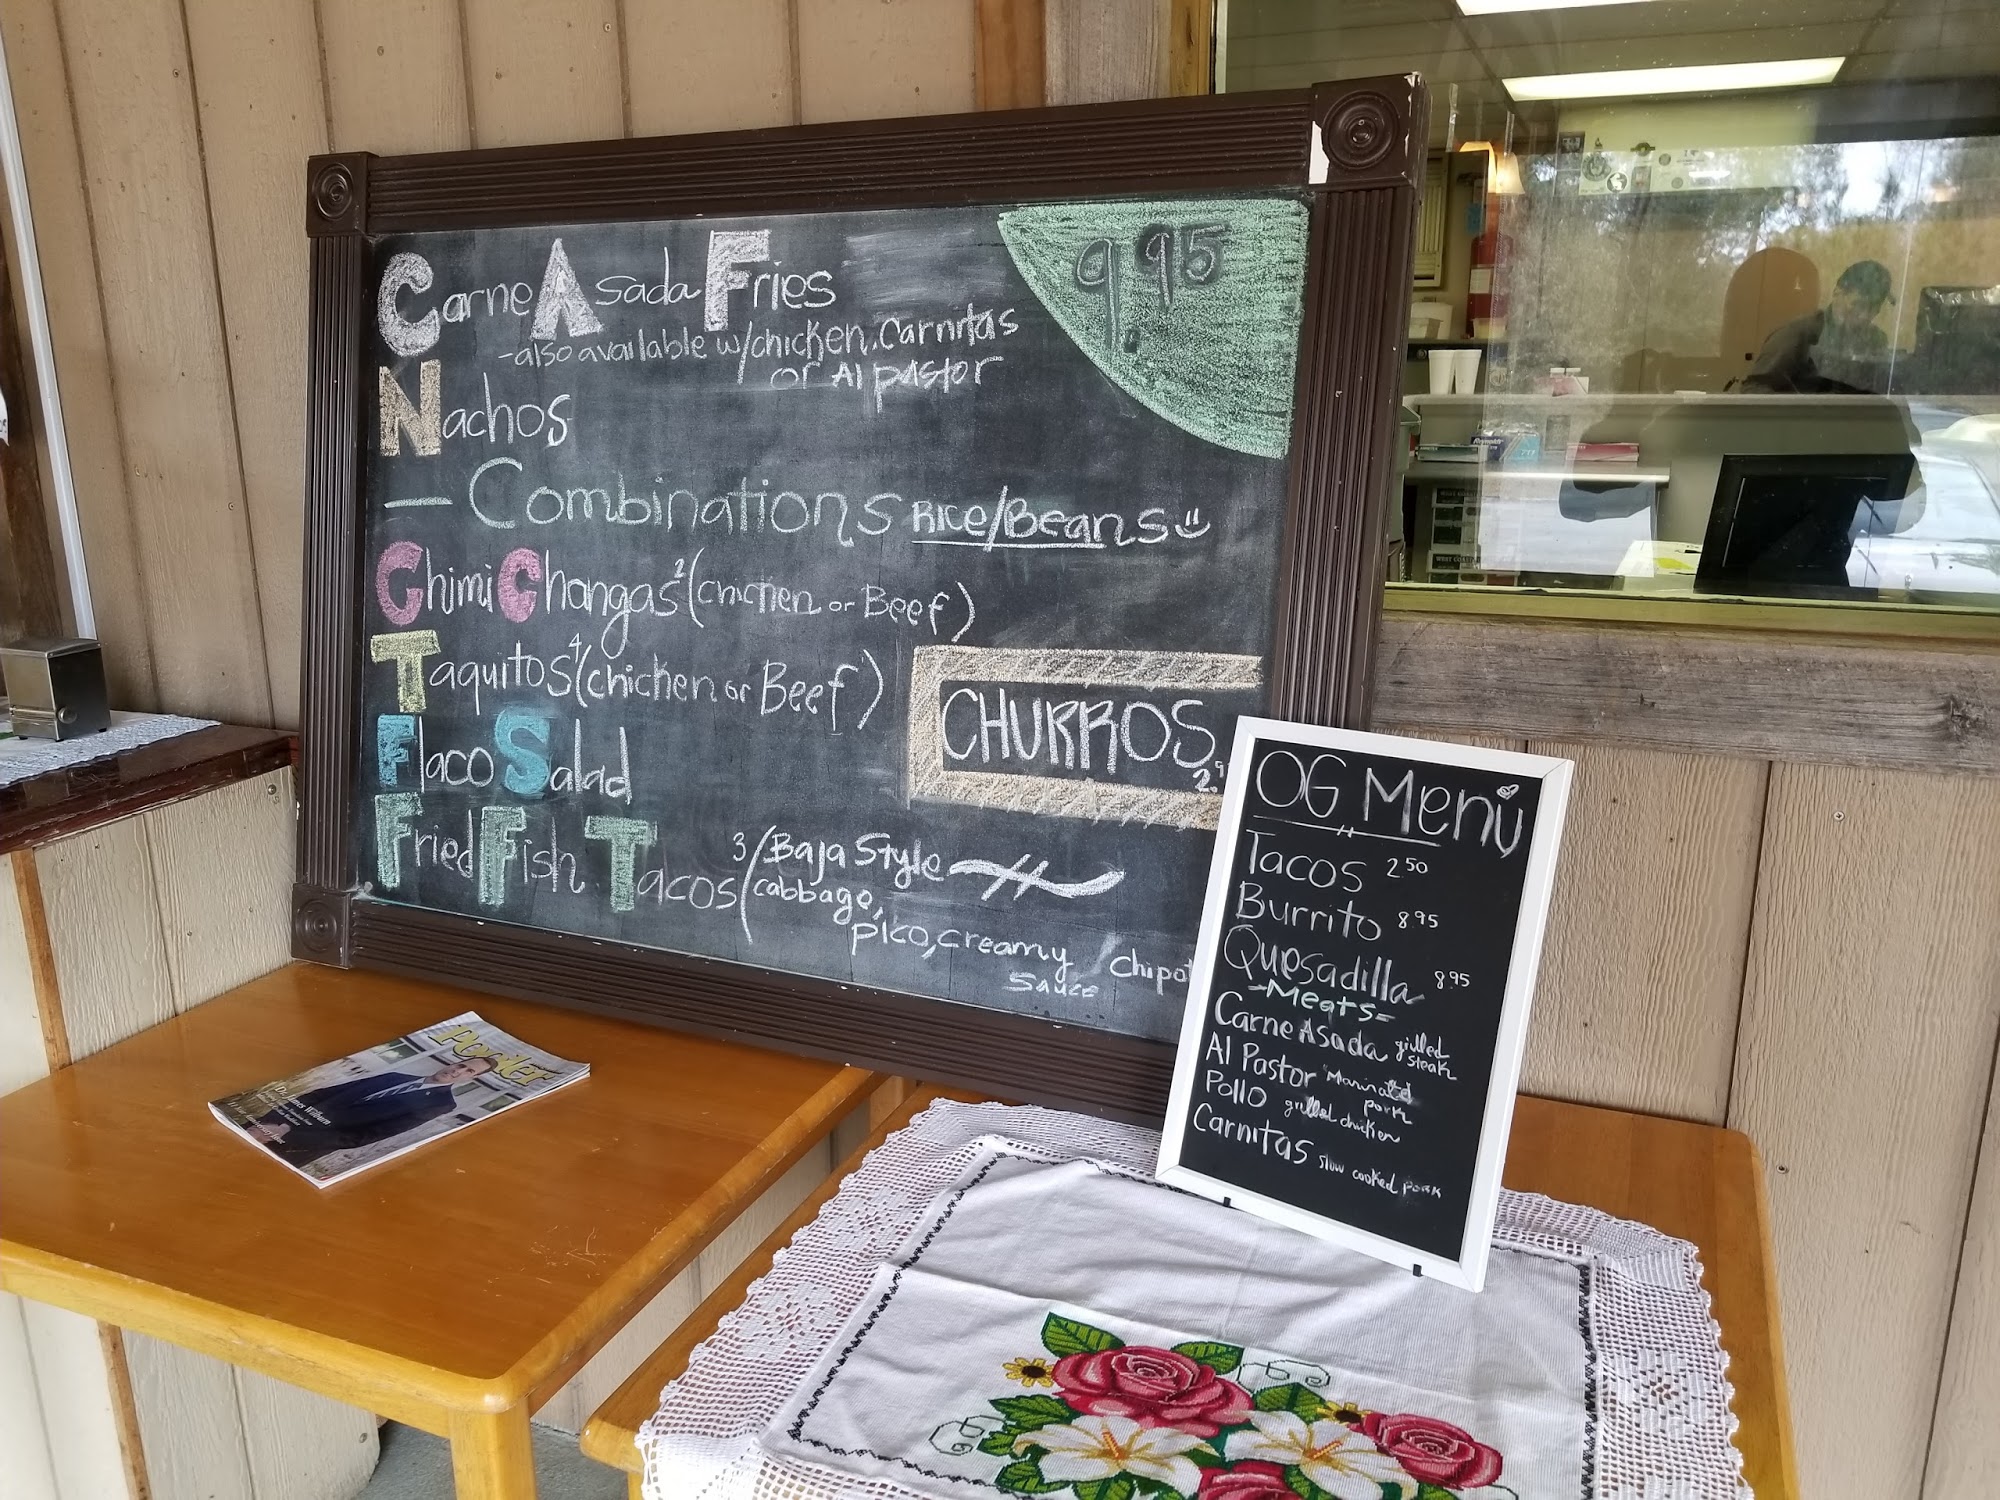 Carne Asada Fries
-also available w/chicken, Carnitas
or Al pastor
9.95
Nachos
— Combinations Rice/Beans
ChimiChangas 2 (chicken or Beef)
Taquitos 4 (chicken or Beef)
Flaco Salad
CHURROS
2.9
Fried Fish Tacos 3 / Baja Style
cabbage,
pico, creamy / chipot
sauce
OG Menu
Tacos 2.50
Burrito 8.95
Quesadilla 8.95
-Meats-
Carne Asada grilled
steak
Al Pastor Marinated
pork
Pollo grilled chicken
Carnitas slow cooked pork
Pooler